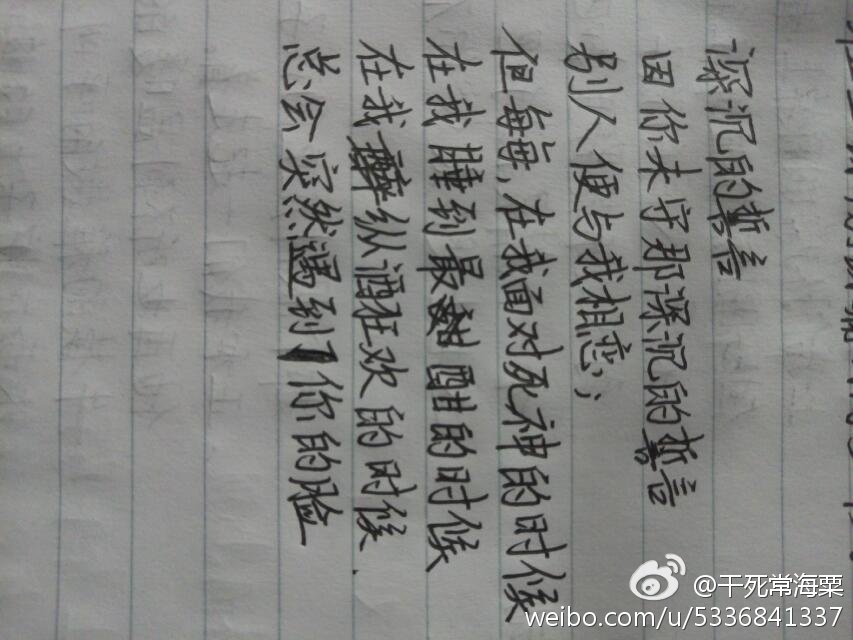 深沉的誓言
因你未守那深沉的誓言
别人便与我相恋；
但每每，在我面对死神的时候
在我睡到最甜酣的时候
在我醉纵酒狂欢的时候
总会突然遇到了你的脸
@干死常海粟
weibo.com/u/5336841337